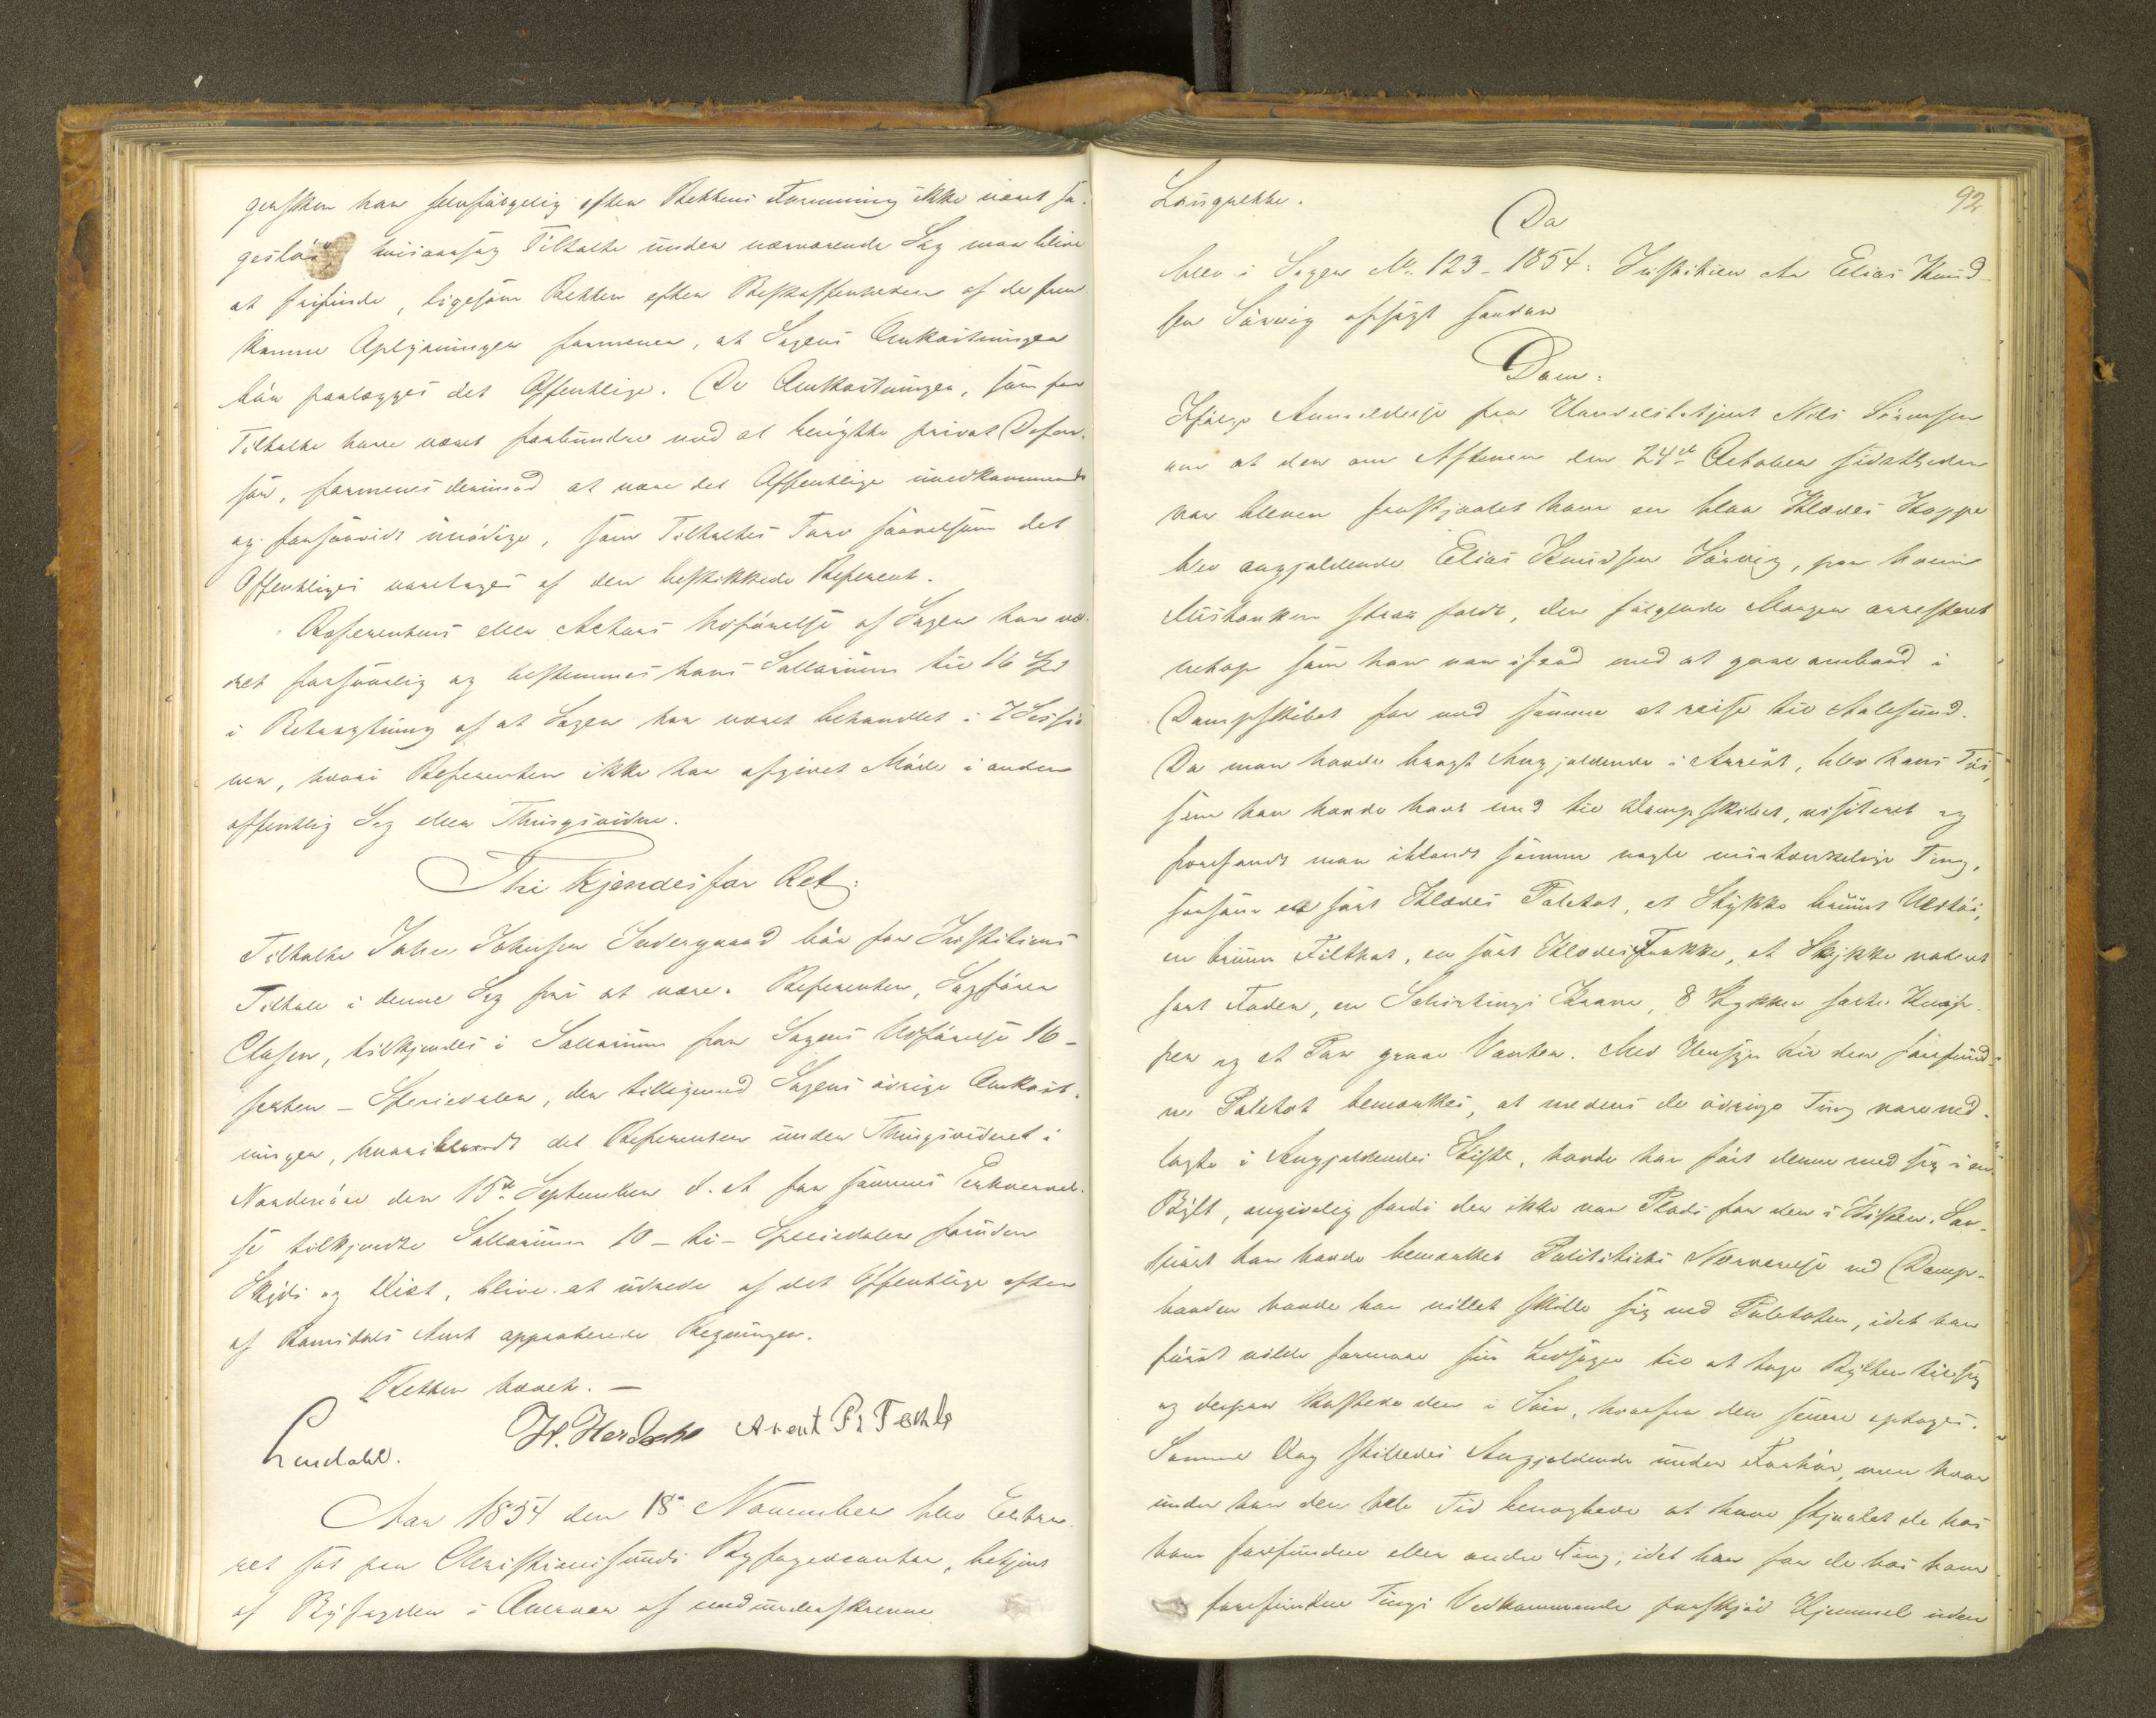 gensken har selvfølgelig efter Rettens Formening ikke været sa-
gesløs, hvisaarsag Tiltalte under nærværende Sag maa blive
at frifinde, ligesom Retten efter Beskaffenheden af de frem-
komne Oplysninger formener, at Sagens Omkostninger
bør paalægges det Offentlige. De Omkostninger, som for
Tiltalte have været forbundne med at benytte privat Defen-
sor, formenes derimod at være det Offentlige uvedkommende
og forsaavidt unødige, som Tiltaltes Tarv saavelsom det
Offentliges varetages af den beskikkede Referent.
Referentens eller Actors Udførelse af Sagen har væ-
ret forsvarlig og bestemmes hans Sallarium til 16 Spd
i Betragtning af at Sagen har været behandlet i 7 Sessio-
ner, hvori Referenten ikke har afgivet Møde i anden
offentlig Sag eller Thingsvidne.
Thi kjendes for Ret:
Tiltalte Johan Johnsen Indergaard bør for Justitiens
Tiltale i denne Sag fri at være. Referenten, Sagfører
Clasen, tilkjendes i Sallarium for Sagens Udførelse 16 -
sexten - Speciedaler, der tilligemed Sagens øvrige Omkost-
ninger, hvoriblandt det Referenten under Thingsvidnet i
Nordmøre den 15de September d. A. for sammes Erhvervel-
se tilkjendte Sallarium 10 - ti - Speciedaler foruden
Skyds og Diæt, blive at udrede af det Offentlige efter
af Romsdals Amt approberede Regninger.
Retten hævet. -
Lindahl. H. Herdahl Arent Pr Teshle
Aar 1854 den 18de November blev Extra-
ret sat paa Christianssunds Byfogedcontor, betjent
af Byfogden i Overvær af medunderskrevne
92
Laugrette.
Da
blev i Sagen No. 123 - 1854: Justitien ctr Elias Knud-
sen Sørvig afsagt saadan
Dom:
Ifølge Anmeldelse fra Handelsbetjent Nils Sørensen
om at der om Aftenen den 24de October sidstleden
var bleven frastjaalet ham en blaa Klædes Kappe
blev angjældende Elias Knudsen Sørvig, paa hvem
Mistanken strax faldt, den følgende Morgen arresteret
netop som han var ifærd med at gaae ombord i
Dampskibet for med samme at reise til Aalesund.
Da man havde bragt Angjældende i Arrest, blev hans Tøi,
som han havde havt med til Dampskibet, visiteret og
forefandt man iblandt samme nogle mistænkelige Ting,
saasom en sort Klædes Paletot, et Stykke bruunt Uldtøi,
en bruun Filthat, en sort Klædes Frakke, et Stykke
sort Foder, en Schirtings Krave, 8 Stykker sorte Knap-
per og et Par graae Vanter. Med Hensyn til den forefund-
ne Paletot bemærkes, at medens de øvrige Ting vare ned-
lagte i Angjældendes Kiste, havde han ført denne med sig i en
Bylt, angivelig fordi der ikke var Plads for den i Kisten. Saa-
snart han havde bemærket Politibetjents Nærværelse ved Damp-
baaden havde han villet skille sig ved Paletoten, idet han
først vilde formaae sin Ledsager til at tage Bylten til sig
og derpaa kastede den i Søen, hvorfra den senere optoges.
Samme Dag stilledes Angjældende under Forhør, men hvor-
under han den hele Tid benægtede at have stjaalet de hos
ham forefundne eller andre Ting, idet han for de hos ham
forefundne Tings Vedkommende paaskjød Hjemmel uden